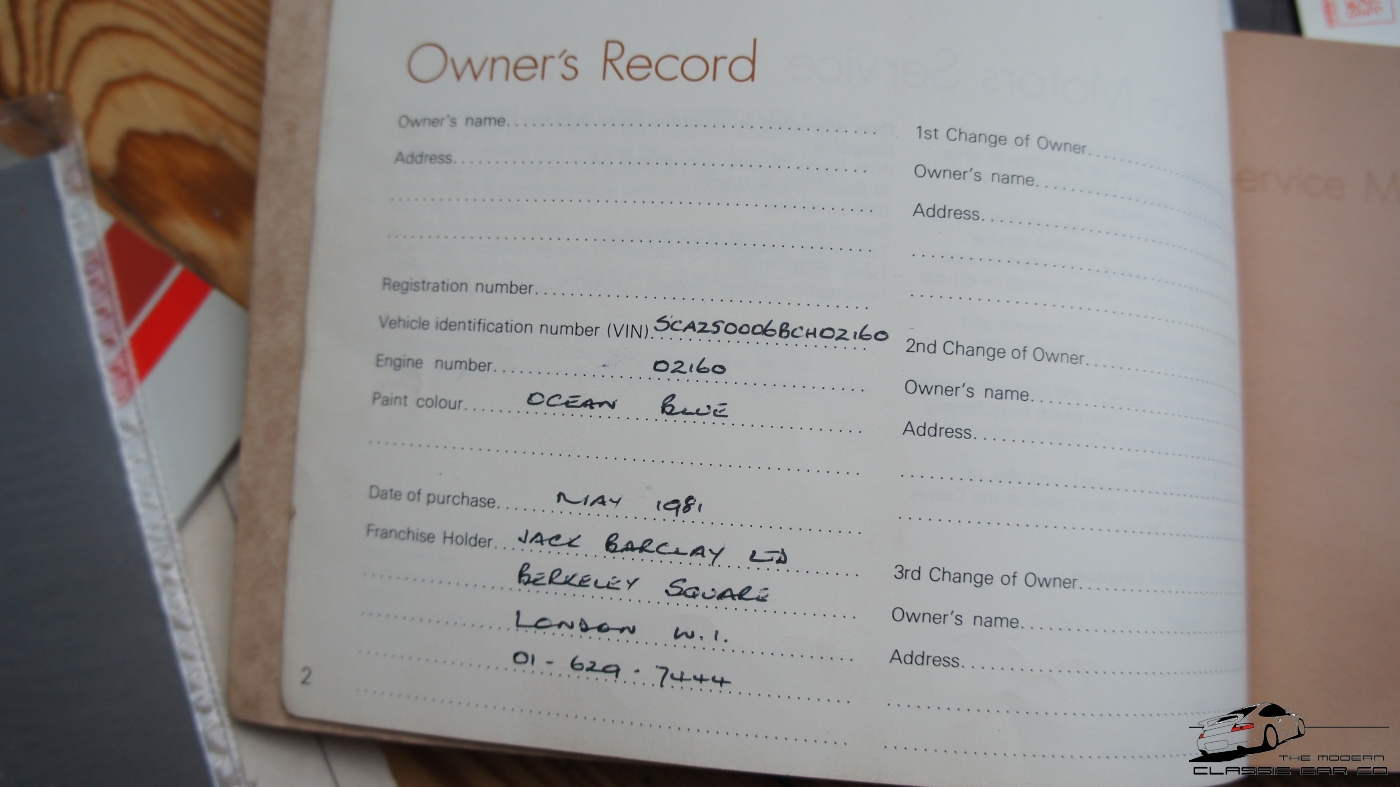 Owner's Record
Owner's name
Address
Registration number
Vehicle identification number (VIN) SCAZS0006BCH02160
Engine number 02160
Paint colour OCEAN BLUE
Date of purchase MAY 1981
Franchise Holder JACK BARCLAY LTD
BERKELEY SQUARE
LONDON W.1.
01-629-7444
2
1st Change of Owner
Owner's name
Address
2nd Change of Owner
Owner's name
Address
3rd Change of Owner
Owner's name
Address
THE MODERN
CLASSIC CAR CO